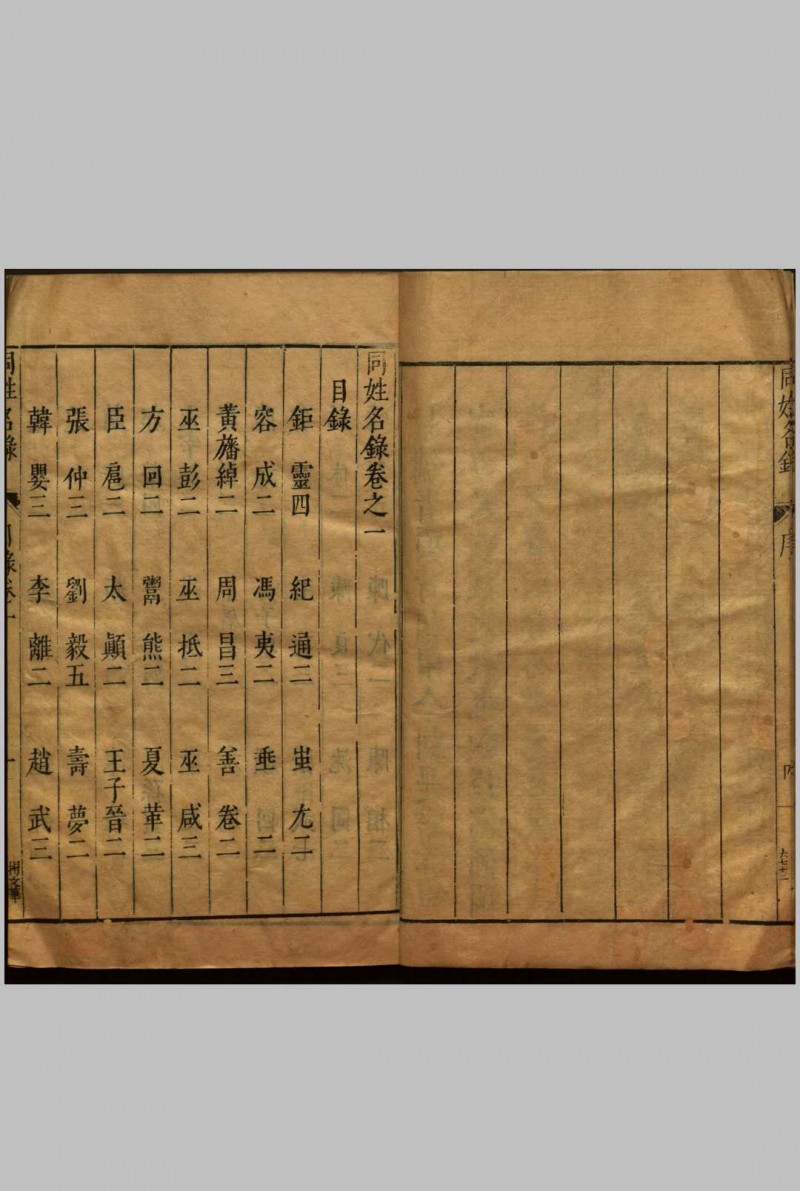 同姓名錄
序
同姓名錄卷之一
目錄
鉅靈四 紀通二 蚩尤二
容成二 馮夷二 垂二
黃旛綽二 周昌三 善卷二
巫彭二 巫抵二 巫咸三
方回二 鬻熊二 夏革二
臣扈二 太顛二 王子晉二
張仲三 劉毅五 壽夢二
韓嬰三 李離二 趙武三
同姓名錄 目錄卷一 一